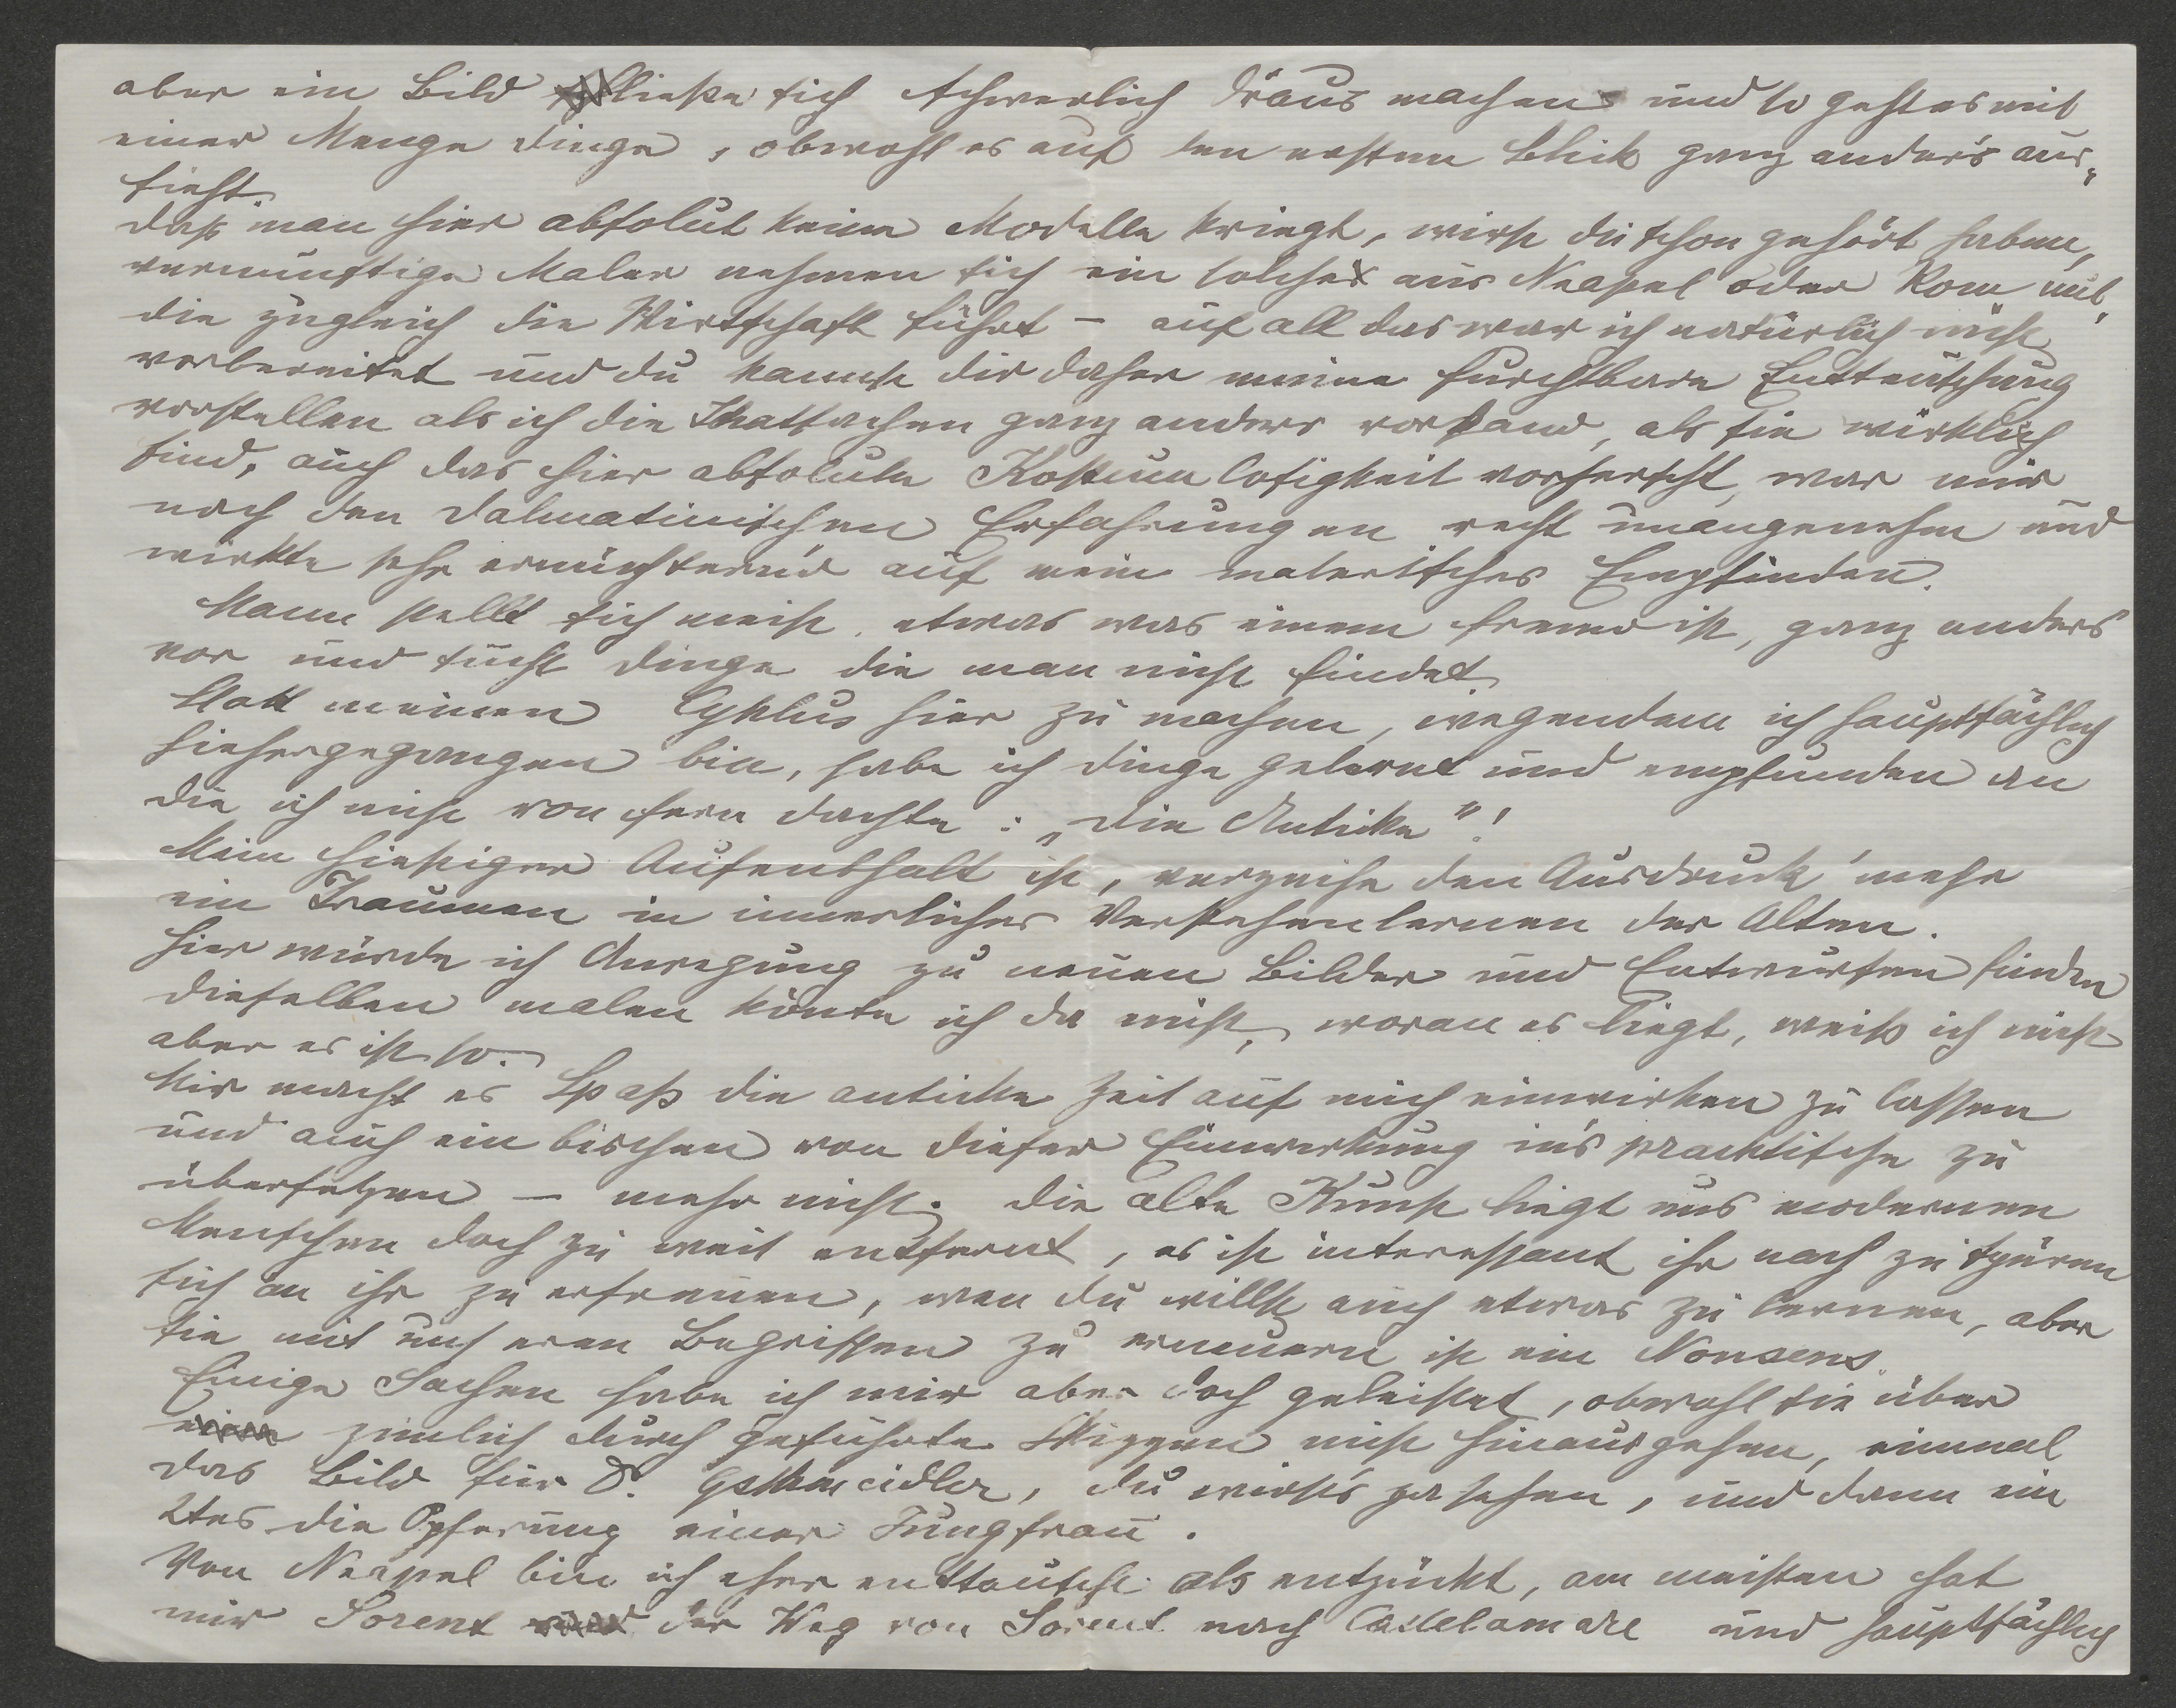 aber ein Bild ließe sich schwerlich draus machen und so geht es mit
einer Menge Dinge, obwohl es auf den ersten Blick ganz anders aus„
sieht.
daß man hier absolut keine Modelle kriegt, wirst du schon gehört haben,
vernünftige Maler nehmen sich ein solches aus Neapel oder Rom mit,
die zugleich die Wirtschaft führt – auf all das war ich natürlich nicht
vorbereitet und du kannst dir daher meine furchtbare Enttäuschung
vorstellen als ich die Thatsachen ganz anders vorfand, als sie wirklich
sind, auch das hier absolute Kostum losigkeit vorherscht, war mir
nach den Dalmatinischen Erfahrungen recht unangenehm und
wirkte sehr ernüchternd auf mein malerisches Empfinden.
Mann stellt sich meist etwas was einem fremd ist, ganz anders
vor und sucht Dinge die man nicht findet.
Statt meinen Cyklus hier zu machen, wegendem ich hauptsächlich
hiehergegangen bin, habe ich Dinge gelernt und empfunden an
die ich nicht von fern dachte: „Die Anticke"!
Mein hiesiger Aufenthalt ist, verzeihe den Ausdruck mehr
ein Traumen in innerliches Verstehenlernen der Alten.
hier würde ich Anregung zu neuen Bilder und Entwürfen finden
dieselben malen könte ich da nicht, woran es liegt, weiß ich nicht
aber es ist so.
Mir macht es Spaß die anticke Zeit auf mich einwirken zu lassen
und auch ein bischen von dieser Einwirkung in's pracktische zu
übersetzen – mehr nicht. Die alte Kunst liegt uns modernen
Menschen doch zu weit entfernt, es ist interessant ihr nach zu spüren
sich an ihr zu erfreuen, wen du willst auch etwas zu lernen, aber
sie mit unseren Begriffen zu erneuern ist ein Nonsens.
Einige Sachen habe ich mir aber doch geleistet, obwohl sie über
zimlich durch geführte Skizzen nicht hinausgehen, einmal
das Bild für D. Gschmeidler, du wirst's ja sehen, und dann ein
2tes die Opferung einer Jungfrau.
Von Neapel bin ich eher enttäuscht als entzückt, am meisten hat
mir Sorent der Weg von Sorent nach Castelamare und hauptsächlich